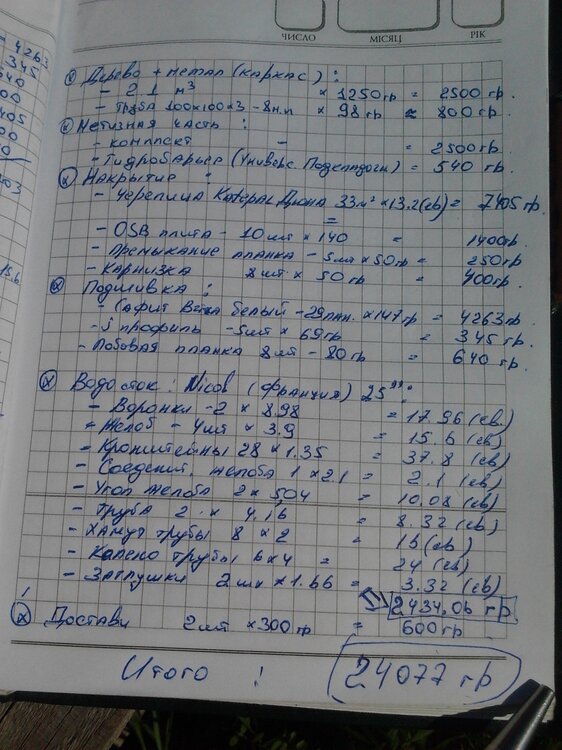 ЧИСЛО МІСЯЦЬ РІК
4263
345
640
Дерево + метал (каркас) :
- 2.1 м³ × 1250 гр = 2500 гр.
- Труба 100×100×3 - 8м.п × 98 гр ≈ 800 гр.
Метизная часть :
- комплект - = 2500 гр.
- Гидробарьер (Универс. Подкладочн) = 540 гр.
Накрытие :
- Черепица Катерал Дюна 33м² × 13.2 (ев) = 7405 гр.
- OSB плита - 10 шт × 140 = 1400 гр.
- Премыкание планка - 5 шт × 50 гр = 250 гр
- Карнизка 8 шт × 50 гр = 400 гр.
Подшивка :
- Сафит Вета белый - 29 пан. × 147 гр = 4263 гр.
- J профиль - 5 шт × 69 гр = 345 гр
- Лобовая планка 8 шт - 80 гр = 640 гр.
Водосток : Nicoll (Франция) 25 :
- Воронки - 2 × 8.98 = 17.96 (ев.)
- Желоб - 4 шт × 3.9 = 15.6 (ев)
- Кронштейны 28 × 1.35 = 37.8 (ев)
- Соеденит. желоба 1 × 2.1 = 2.1 (ев)
- Угол желоба 2 × 504 = 10.08 (ев)
- Труба 2 × 4.16 = 8.32 (ев)
- Хамут трубы 8 × 2 = 16 (ев)
- Калено трубы 6 × 4 = 24 (ев)
- Заглушки 2 шт × 1.66 = 3.32 (ев)
2434,06 гр
Достави 2 шт × 300 гр = 600 гр
Итого : 24077 гр